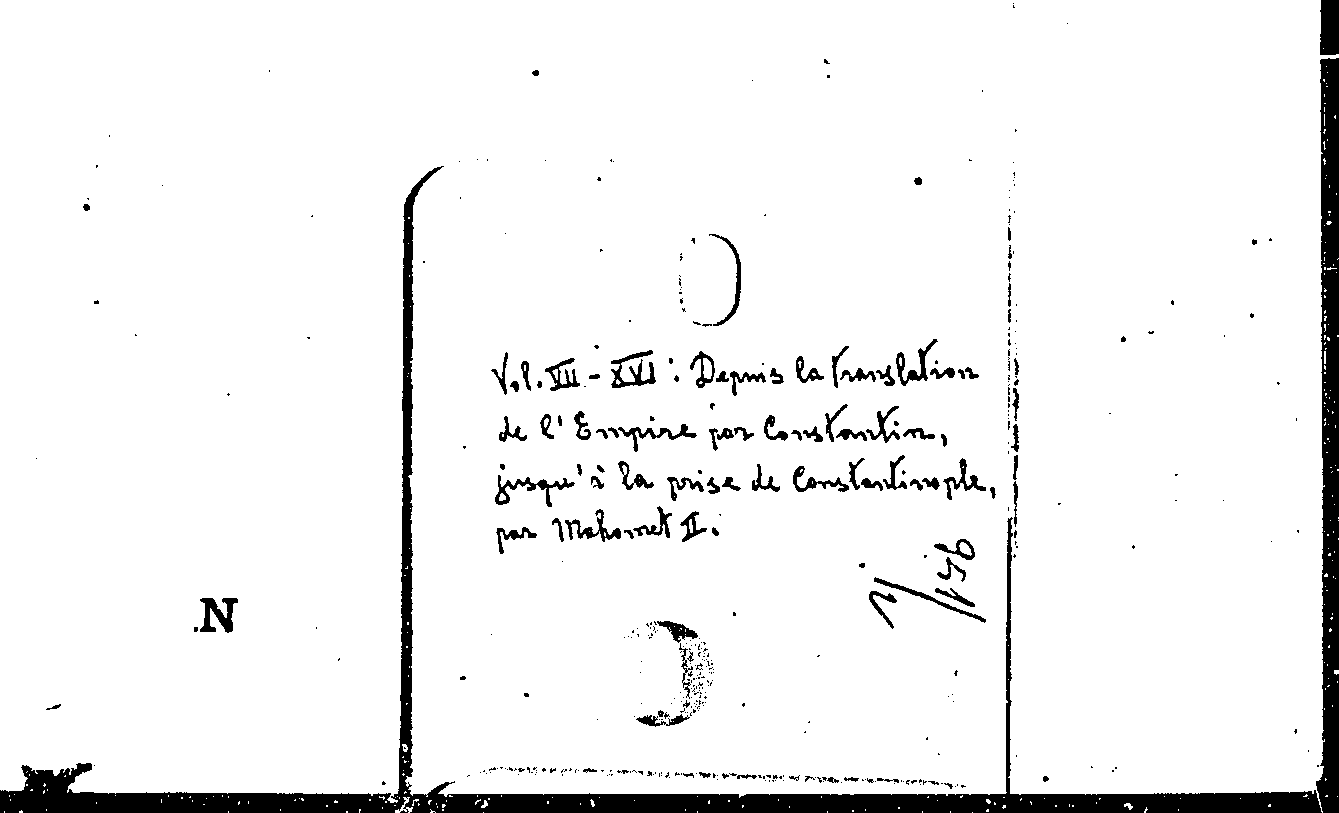 Vol. VII - XVI : Depuis la translation
de l'Empire par Constantin,
jusqu'à la prise de Constantinople,
par Mahomet II.
N